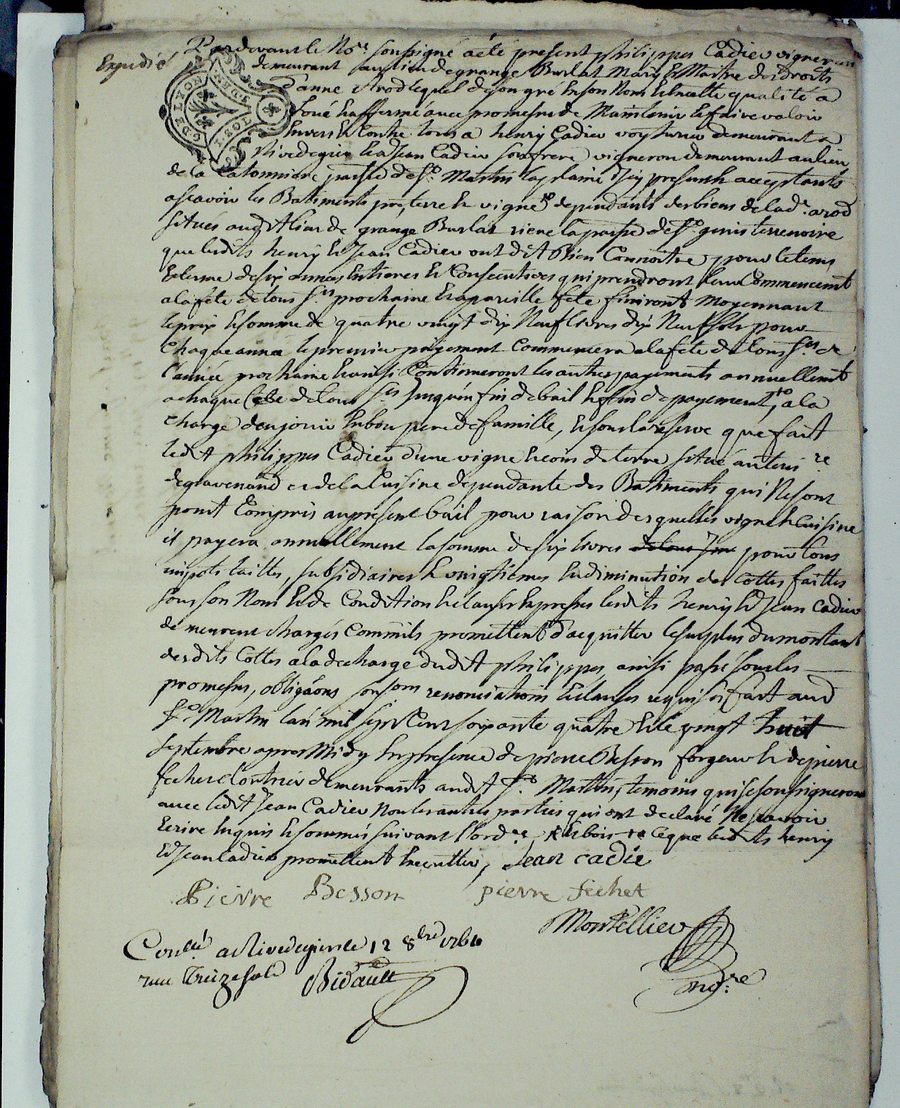 Expedié
Pardevant le No.re soussigné a été present philippes Cadieu vigneron
demeurant au lieu de grange Burlat Mary & Maitre des droits
d'anne Arod lequel de son gré en son Nom & en laditte qualité a
loué & affermé avec promesse de Maintenir & faire valoir
Envers & Contre tous a henry Cadieu voyturier demeurant a
Rivedegier & a Jean Cadieu son frere vigneron demeurant au lieu
de la Catonniere parroisse de St. Martin la plaine icy presents acceptants
ascavoir les Batiments pré, terre & vigne dependants des biens de lad. arod
situés aud. lieu de grange Burlat riere la paroisse de St. genis terrenoire
que lesdits henry & Jean Cadieu ont dit Bien Connoitre, pour le tems
& terme de six années Entieres & Consecutives qui prendront leur Commencement
a la féte de tous Sts prochaine & a pareille féte finiront Moyennant
le prix & somme de quatre vingt dix Neuf livres dix Neuf sols pour
Chaque année le premier payement Commencera a la féte de tous Sts de
l'année prochaine & ainsi Continueront les autres payements annuellement
a chaque féte de tous Sts jusqu'en fin de bail & fin de payement, a la
charge d'en jouir En bon pere de famille, & sous la reserve que fait
ledit philippes Cadieu d'une vigne & coin de terre situé au terri.re
de gravenand et de la Cuisine dependante des Batiments qui Ne sont
point Compris au present bail pour raison desquelles vigne & Cuisine
il payera annuellement la somme de six livres pour tous
impots tailles, subsidiaires & vingtiemes En diminution des Cottes faittes
sous son Nom & de Condition & clause Expresse lesdits henry & Jean Cadieu
demeurent chargés Commils promettent d'acquitter le surplus du montant
desdits Cottes a la decharge dudit philippes, ainsi passé sous les
promesses, obligaons, soumisons renonciations & clauses requises fait aud
St. Martin l'an mil sept Cent soixante quatre & le vingt huit
septembre apres Midy En presence de pierre Besson forgeur & de pierre
fechet demeurants audit St. Martin, temoins qui se soussigneront
avec ledit Jean Cadieu Non les autres parties qui ont declaré Ne scavoir
Ecrire Enquis & sommés suivant l'ord.ce, Ce que lesdits henry
& Jean Cadieu promettent Executter, Jean cadie
Pierre Besson pierre fechet
Montellier
Con.llé a Rivedegier le 12 8bre 1764
recu treize sols Bidault
No.re